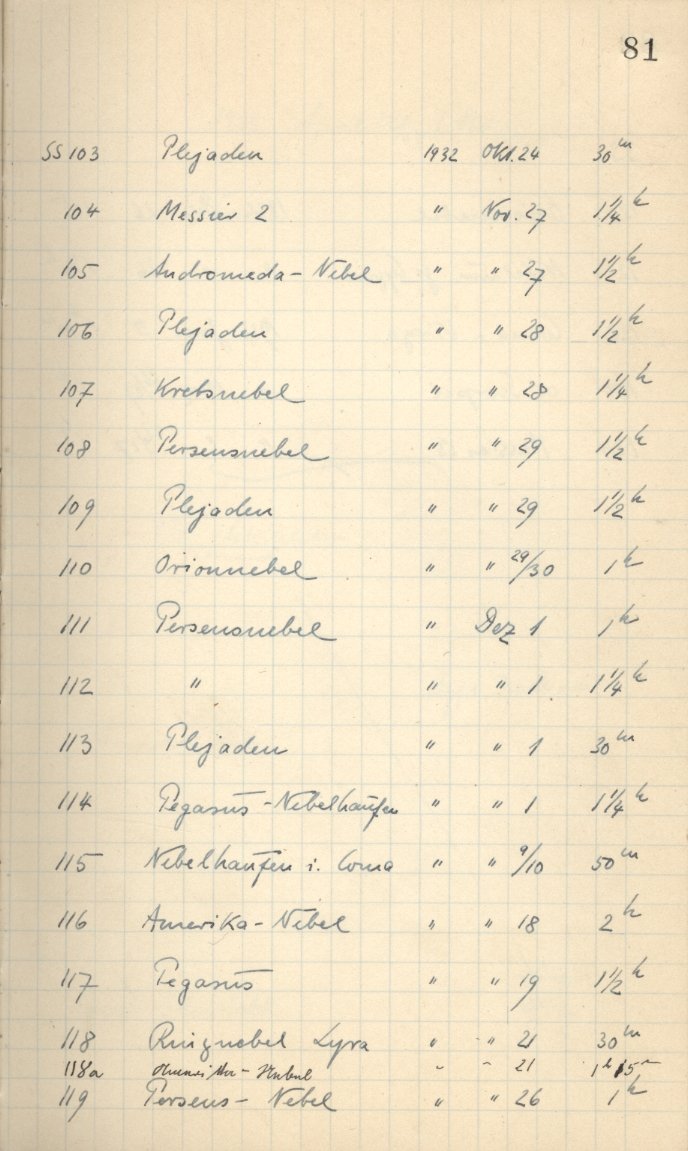 81
SS 103 Plejaden 1932 Okt. 24 30ᵐ
104 Messier 2 " Nov. 27 1 1/4ʰ
105 Andromeda-Nebel " " 27 1 1/2ʰ
106 Plejaden " " 28 1 1/2ʰ
107 Krebsnebel " " 28 1 1/4ʰ
108 Perseusnebel " " 29 1 1/2ʰ
109 Plejaden " " 29 1 1/2ʰ
110 Orionnebel " " 29/30 1ʰ
111 Perseusnebel " Dez 1 1ʰ
112 " " " 1 1 1/4ʰ
113 Plejaden " " 1 30ᵐ
114 Pegasus-Nebelhaufen " " 1 1 1/4ʰ
115 Nebelhaufen i. Coma " " 9/10 50ᵐ
116 Amerika-Nebel " " 18 2ʰ
117 Pegasus " " 19 1 1/2ʰ
118 Ringnebel Lyra " " 21 30ᵐ
118a " " 21 1ʰ 15ᵐ
119 Perseus-Nebel " " 26 1ʰ